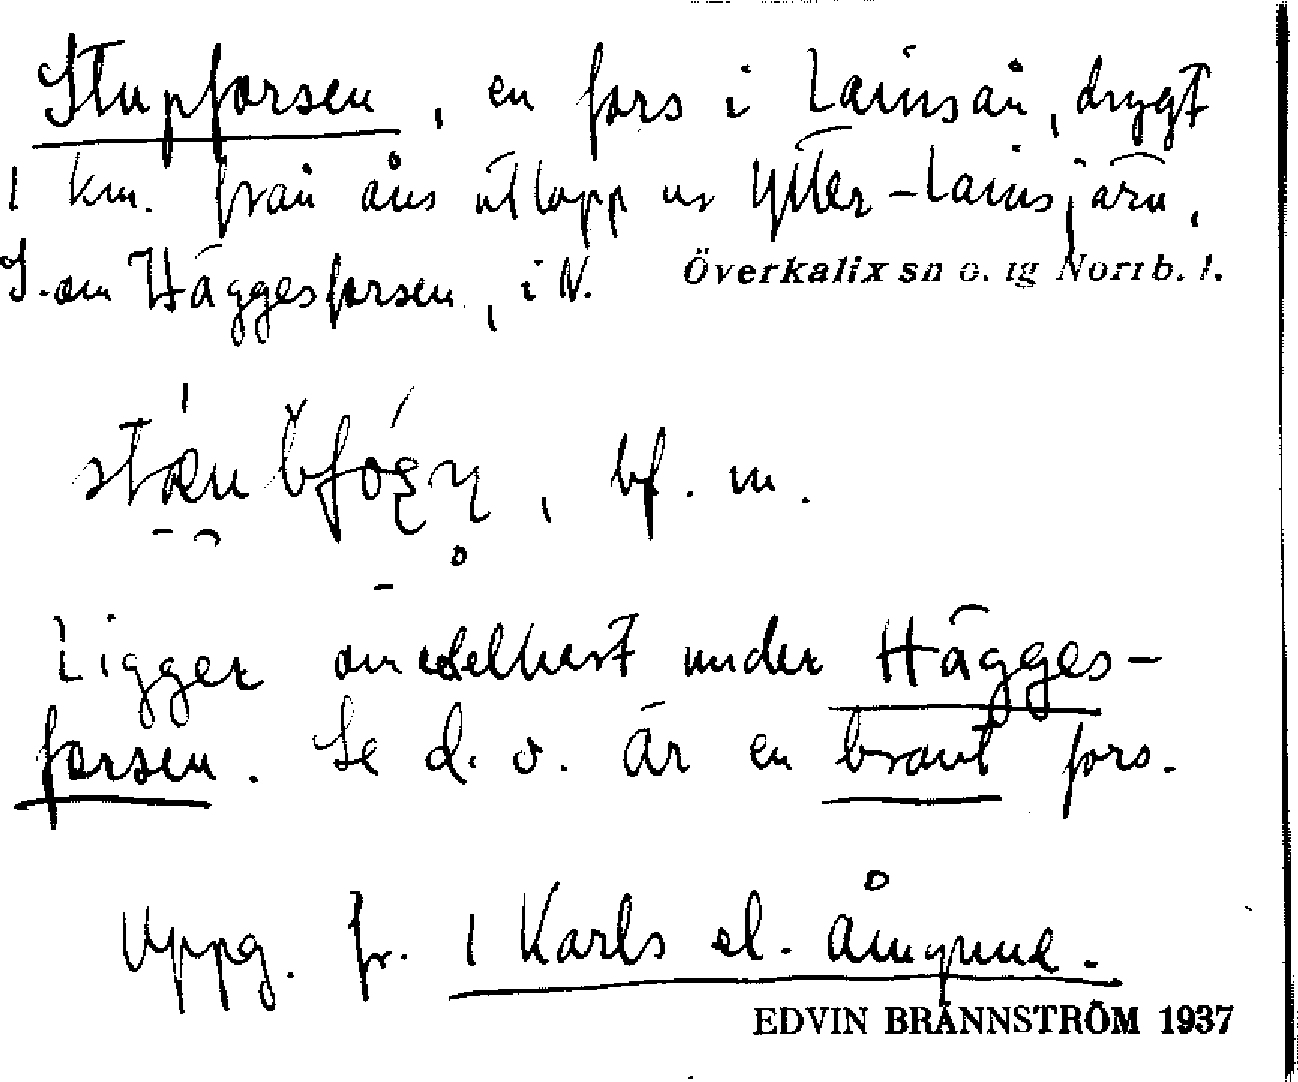 Stupforsen, en fors i Lainsån, drygt
1 km. från åns utlopp ur Ytter-Lainsjärn,
S.om Häggesforsen, i N. Överkalix sn o. tg Norrb. l.
bf. m.
Ligger omedelbart under Hägges-
forsen. Se d. o. Är en brant fors.
Uppg. fr. 1 Karls el. Ängrund.
EDVIN BRÄNNSTRÖM 1937